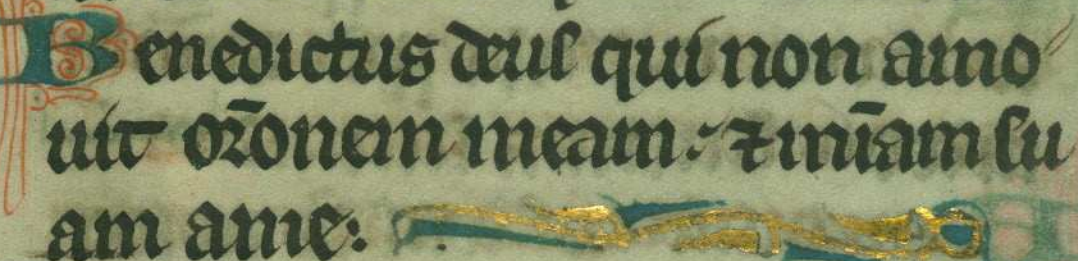 Benedictus deus qui non amo
uit or̄onem meam: ⁊ mīam su
am a me: